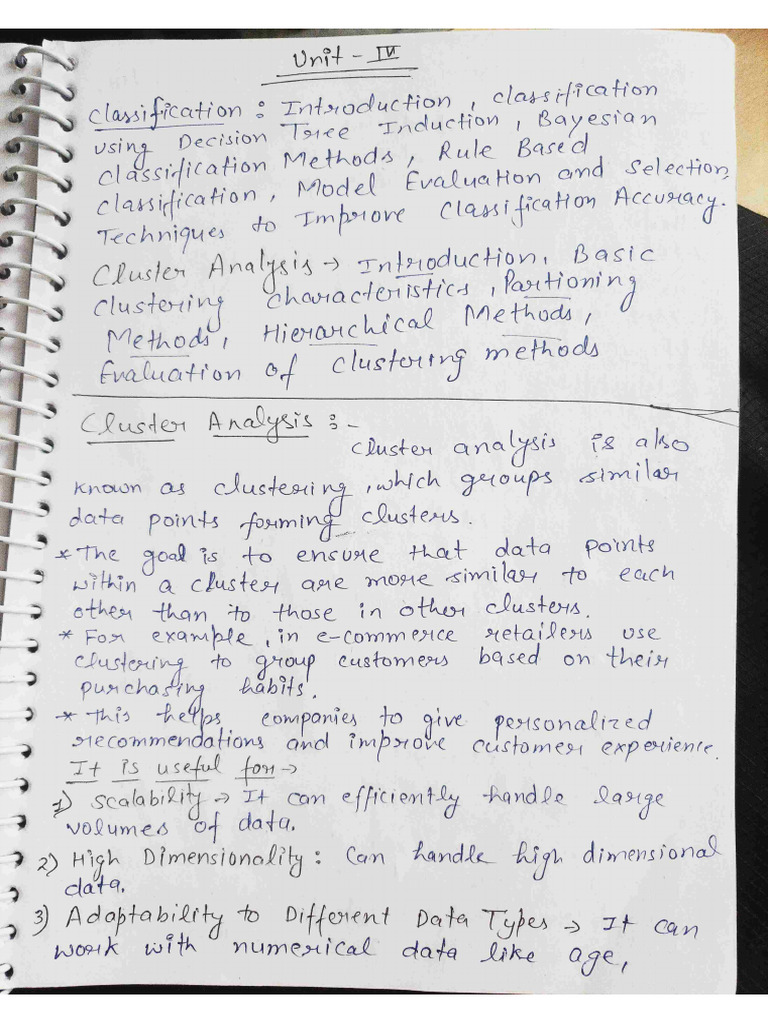 Unit - IV
Classification : Introduction, classification
using Decision Tree Induction, Bayesian
Classification Methods, Rule Based
Classification, Model Evaluation and Selection,
Techniques to Improve Classification Accuracy.
Cluster Analysis → Introduction, Basic
Clustering Characteristics, Partioning
Methods, Hierarchical Methods,
Evaluation of clustering methods
Cluster Analysis :-
Cluster analysis is also
known as clustering, which groups similar
data points forming clusters.
* The goal is to ensure that data points
within a cluster are more similar to each
other than to those in other clusters.
* For example, in e-commerce retailers use
clustering to group customers based on their
purchasing habits.
* This helps companies to give personalized
recommendations and improve customer experience.
It is useful for →
1) Scalability → It can efficiently handle large
volumes of data.
2) High Dimensionality : Can handle high dimensional
data.
3) Adaptability to Different Data Types → It can
work with numerical data like age,